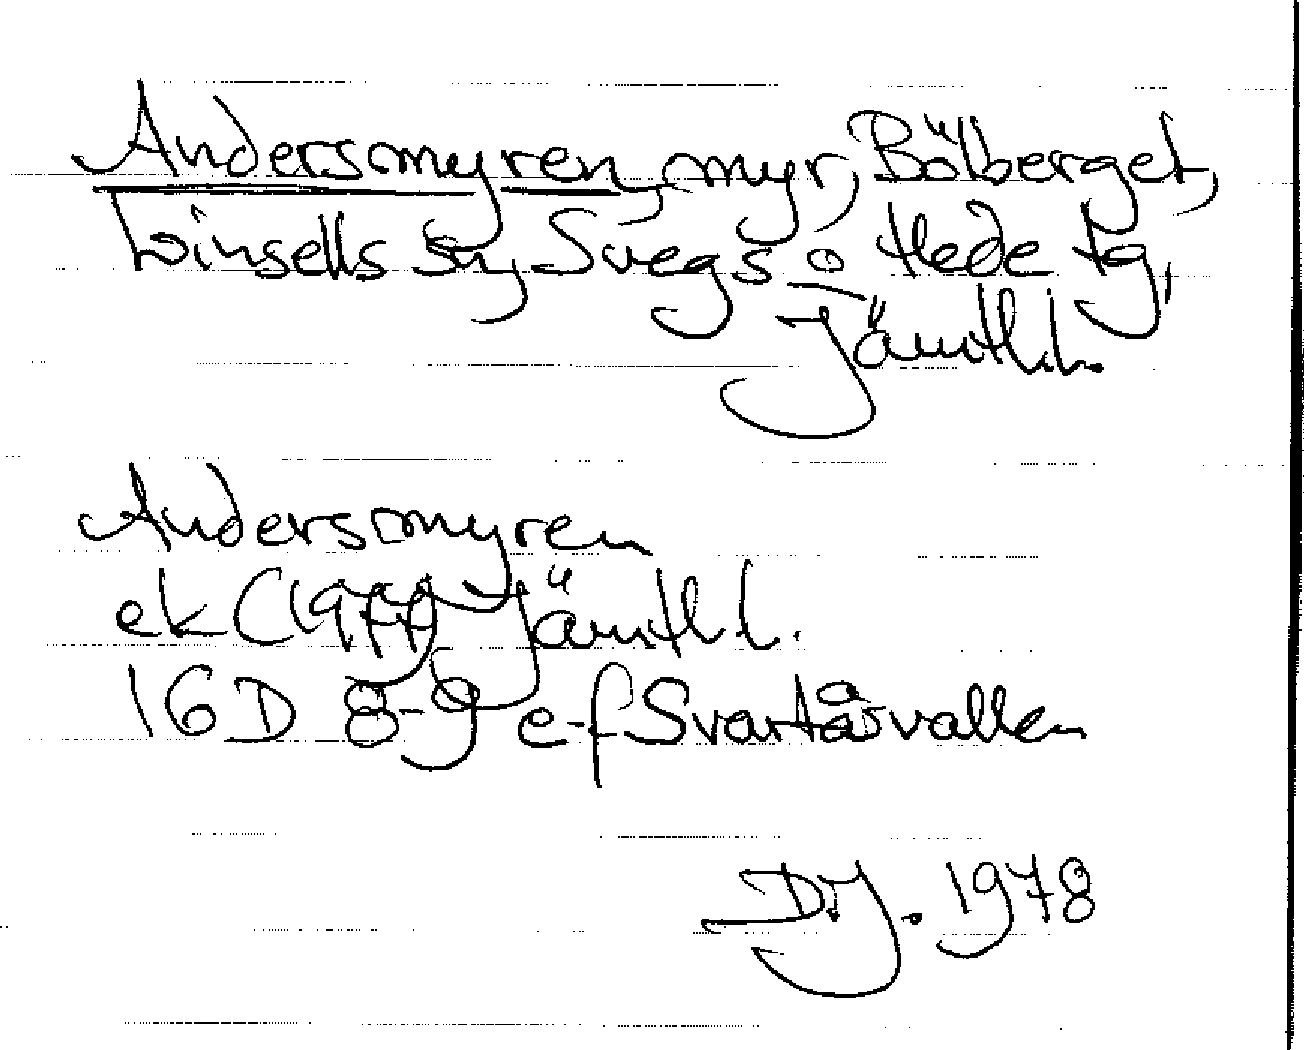 Andersmyren, myr, Bölberget,
Linsells sn, Svegs o Hede tg,
Jämtl.l.
Andersmyren
ek (1977) Jämtl l.
16 D 8-9 e-f Svartåsvallen
D.J. 1978